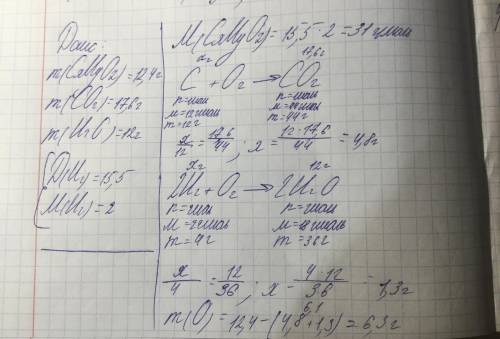 Дано:
m(CxHyOz)=12,4г
m(CO₂)=17,6г
m(H₂O)=12г
D(H₂)=15,5
M(H₂)=2
M(CxHyOz)=15,5·2=31г/моль
xг 17,6г
C + O₂ → CO₂
n=1моль n=1моль
M=12г/моль M=44г/моль
m=12г m=44г
x/12 = 17,6/44 ; x = 12·17,6/44 = 4,8г
xг 12г
2H₂+O₂ → 2H₂O
n=2моль n=2моль
M=2г/моль M=18г/моль
m=4г m=36г
x/4 = 12/36 ; x = 4·12/36 = 1,3г
6,1
m(O)=12,4-(4,8+1,3)=6,3г